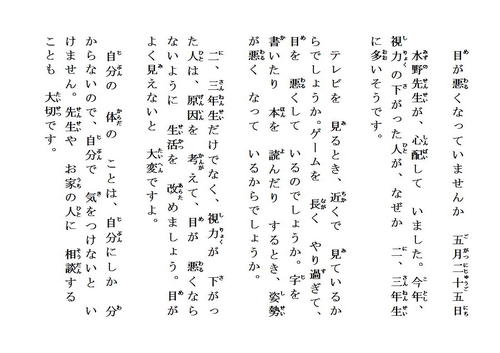 目が悪くなっていませんか　五月二十五日
水野先生が、心配して　いました。今年、
視力の下がった人が、なぜか　二、三年生
に多いそうです。
テレビを　見るとき、近くで　見ているか
らでしょうか。ゲームを　長く　やり過ぎて、
目を　悪くして　いるのでしょうか。字を
書いたり　本を　読んだり　するとき、姿勢
が悪く　なって　いるからでしょうか。
二、三年生だけでなく、視力が　下がっ
た人は、原因を　考えて、目が　悪くなら
ないように　生活を　改めましょう。目が
よく見えないと　大変ですよ。
自分の　体の　ことは、自分にしか　分
からないので、自分で　気をつけないと　い
けません。先生や　お家の人に　相談する
ことも　大切です。